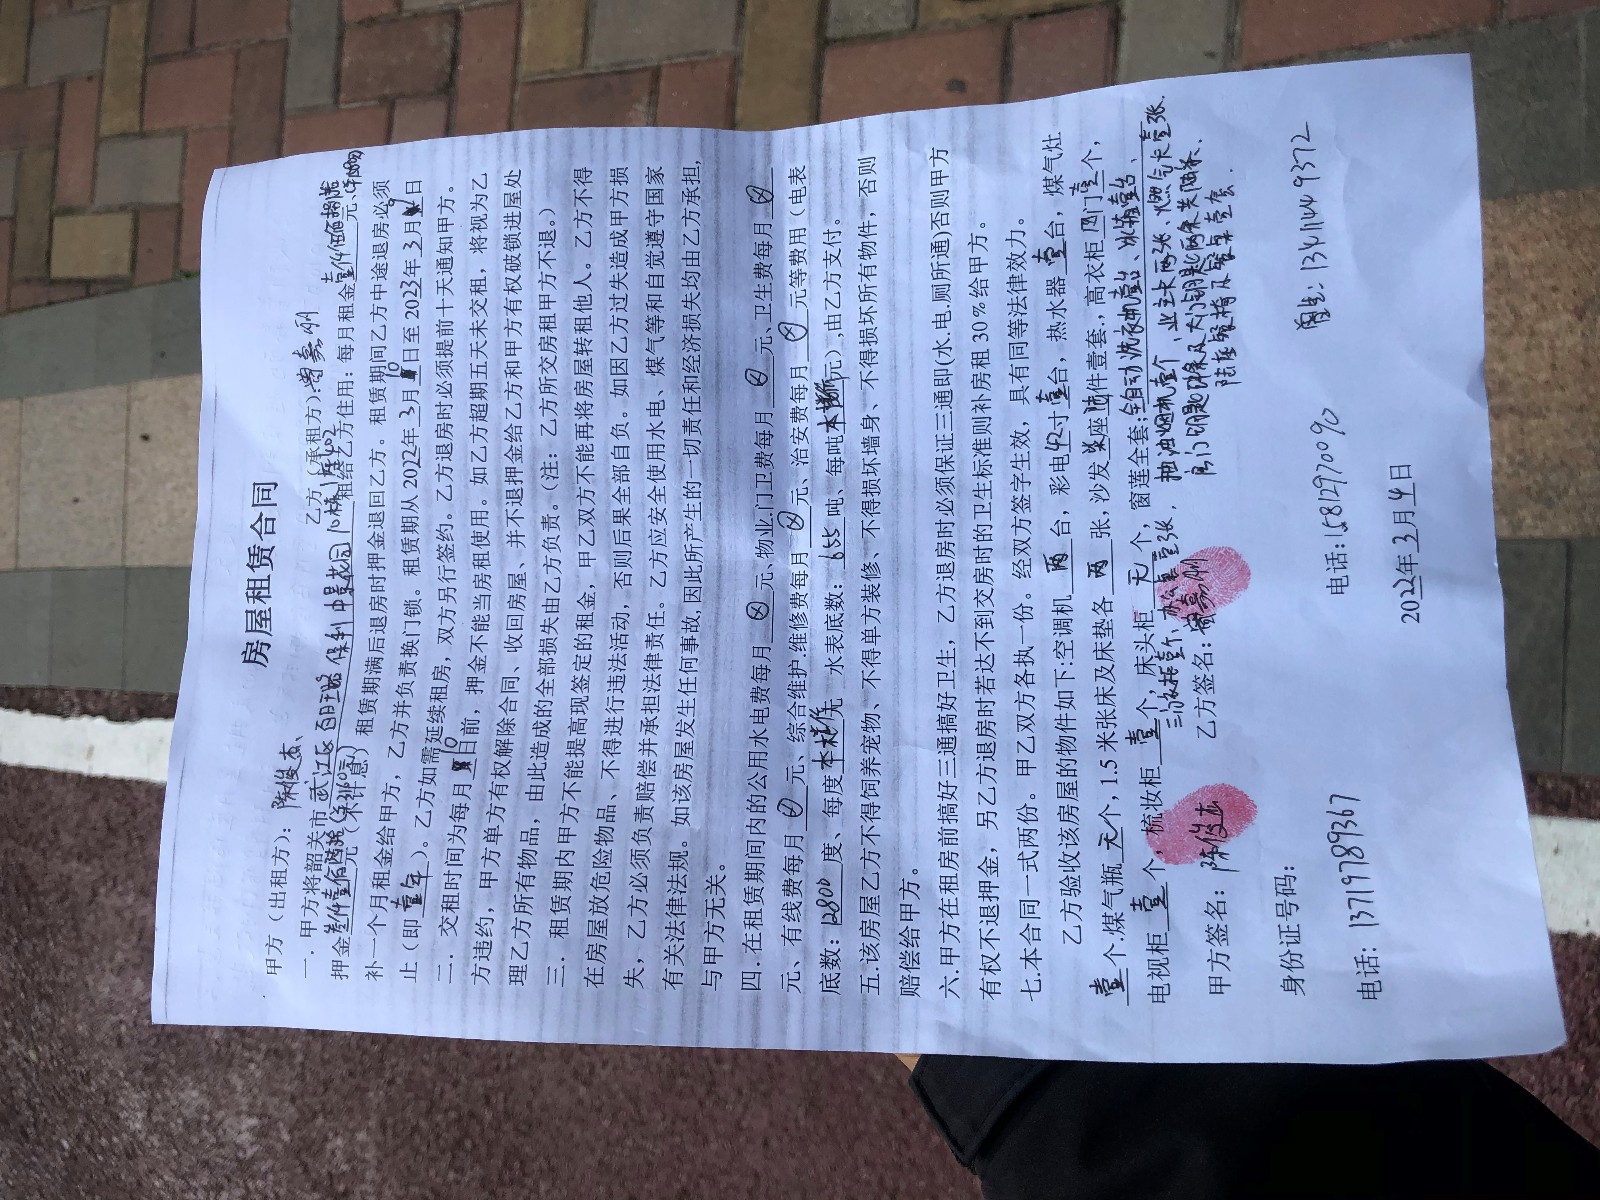 房屋租赁合同
甲方（出租方）：陈俊杰、 乙方（承租方）：
一．甲方将韶关市武江区百旺路保利中景花园小榄 租给乙方住用：每月租金壹仟 元、
押金 元（不计息）租赁期满后退房时押金退回乙方。租赁期间乙方中途退房必须
补一个月租金给甲方，乙方并负责换门锁。租赁期从2022年3月10日至2023年3月9日
止（即壹年）。乙方如需延续租房，双方另行签约。乙方退房时必须提前十天通知甲方。
二．交租时间为每月10日前，押金不能当房租使用。如乙方超期五天未交租，将视为乙
方违约，甲方单方有权解除合同、收回房屋、并不退押金给乙方和甲方有权破锁进屋处
理乙方所有物品，由此造成的全部损失由乙方负责。（注：乙方所交房租甲方不退。）
三．租赁期内甲方不能提高现签定的租金，甲乙双方不能再将房屋转租他人。乙方不得
在房屋放危险物品、不得进行违法活动，否则后果全部自负。如因乙方过失造成甲方损
失，乙方必须负责赔偿并承担法律责任。乙方应安全使用水电、煤气等和自觉遵守国家
有关法律法规。如该房屋发生任何事故,因此所产生的一切责任和经济损失均由乙方承担,
与甲方无关。
四.在租赁期间内的公用水电费每月 元、物业.门卫费每月 元、卫生费每月
元、有线费每月 元、综合维护.维修费每月 元、治安费每月 元等费用（电表
底数：1280度、每度 元 水表底数：655吨、每吨 元）,由乙方支付。
五.该房屋乙方不得饲养宠物、不得单方装修、不得损坏墙身、不得损坏所有物件，否则
赔偿给甲方。
六.甲方在租房前搞好三通搞好卫生，乙方退房时必须保证三通即(水.电.厕所通)否则甲方
有权不退押金，另乙方退房时若达不到交房时的卫生标准则补房租30％给甲方。
七.本合同一式两份。甲乙双方各执一份。经双方签字生效，具有同等法律效力。
乙方验收该房屋的物件如下:空调机两台，彩电42寸壹台，热水器壹台，煤气灶
壹个.煤气瓶无个，1.5米张床及床垫各两张，沙发 座 件壹套.，高衣柜 门壹个，
电视柜壹个，梳妆柜壹个，床头柜无个，窗莲全套.全自动洗衣机壹台、冰箱壹台、
抽油烟机壹个、业主卡两张、燃气卡壹张.
甲方签名：陈俊杰 乙方签名：
身份证号码：
电话：13719789367 电话：15812970090 13411449372
2022年3月4日